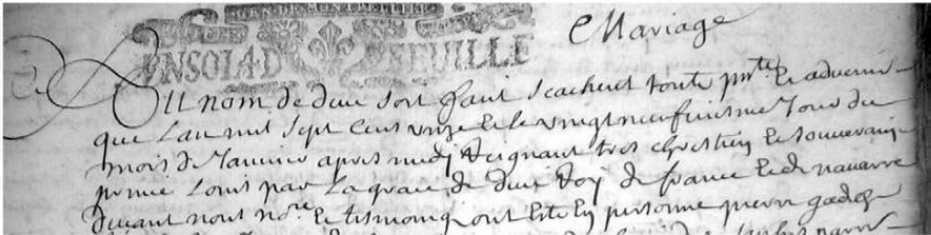 GEN·DE·MONTPELLIER
UN SOL A D SE FEUILLE
Mariage
Au nom de dieu soit faict scachent touts pnts et advenir
que Lan mil sept cens unze et le vingtneufiesme Jour du
mois de Janvier apres midj Reignant tres chrestien et souverain
prince Louis par La grace de dieu Roy de france et de navarre
devant nous nore et tesmoins
en personne pierre